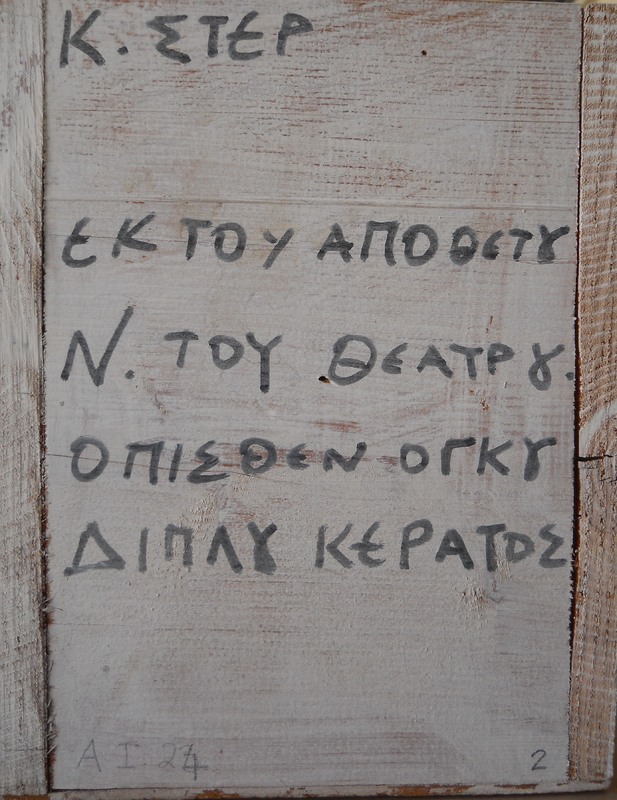 Κ. ΣΤΕΡ
ΕΚ ΤΟΥ ΑΠΟΘΕΤȢ
Ν. ΤΟΥ ΘΕΑΤΡȢ.
ΟΠΙΣΘΕΝ ΟΓΚȢ
ΔΙΠΛȢ ΚΕΡΑΤΟΣ
Α Ι 24 2